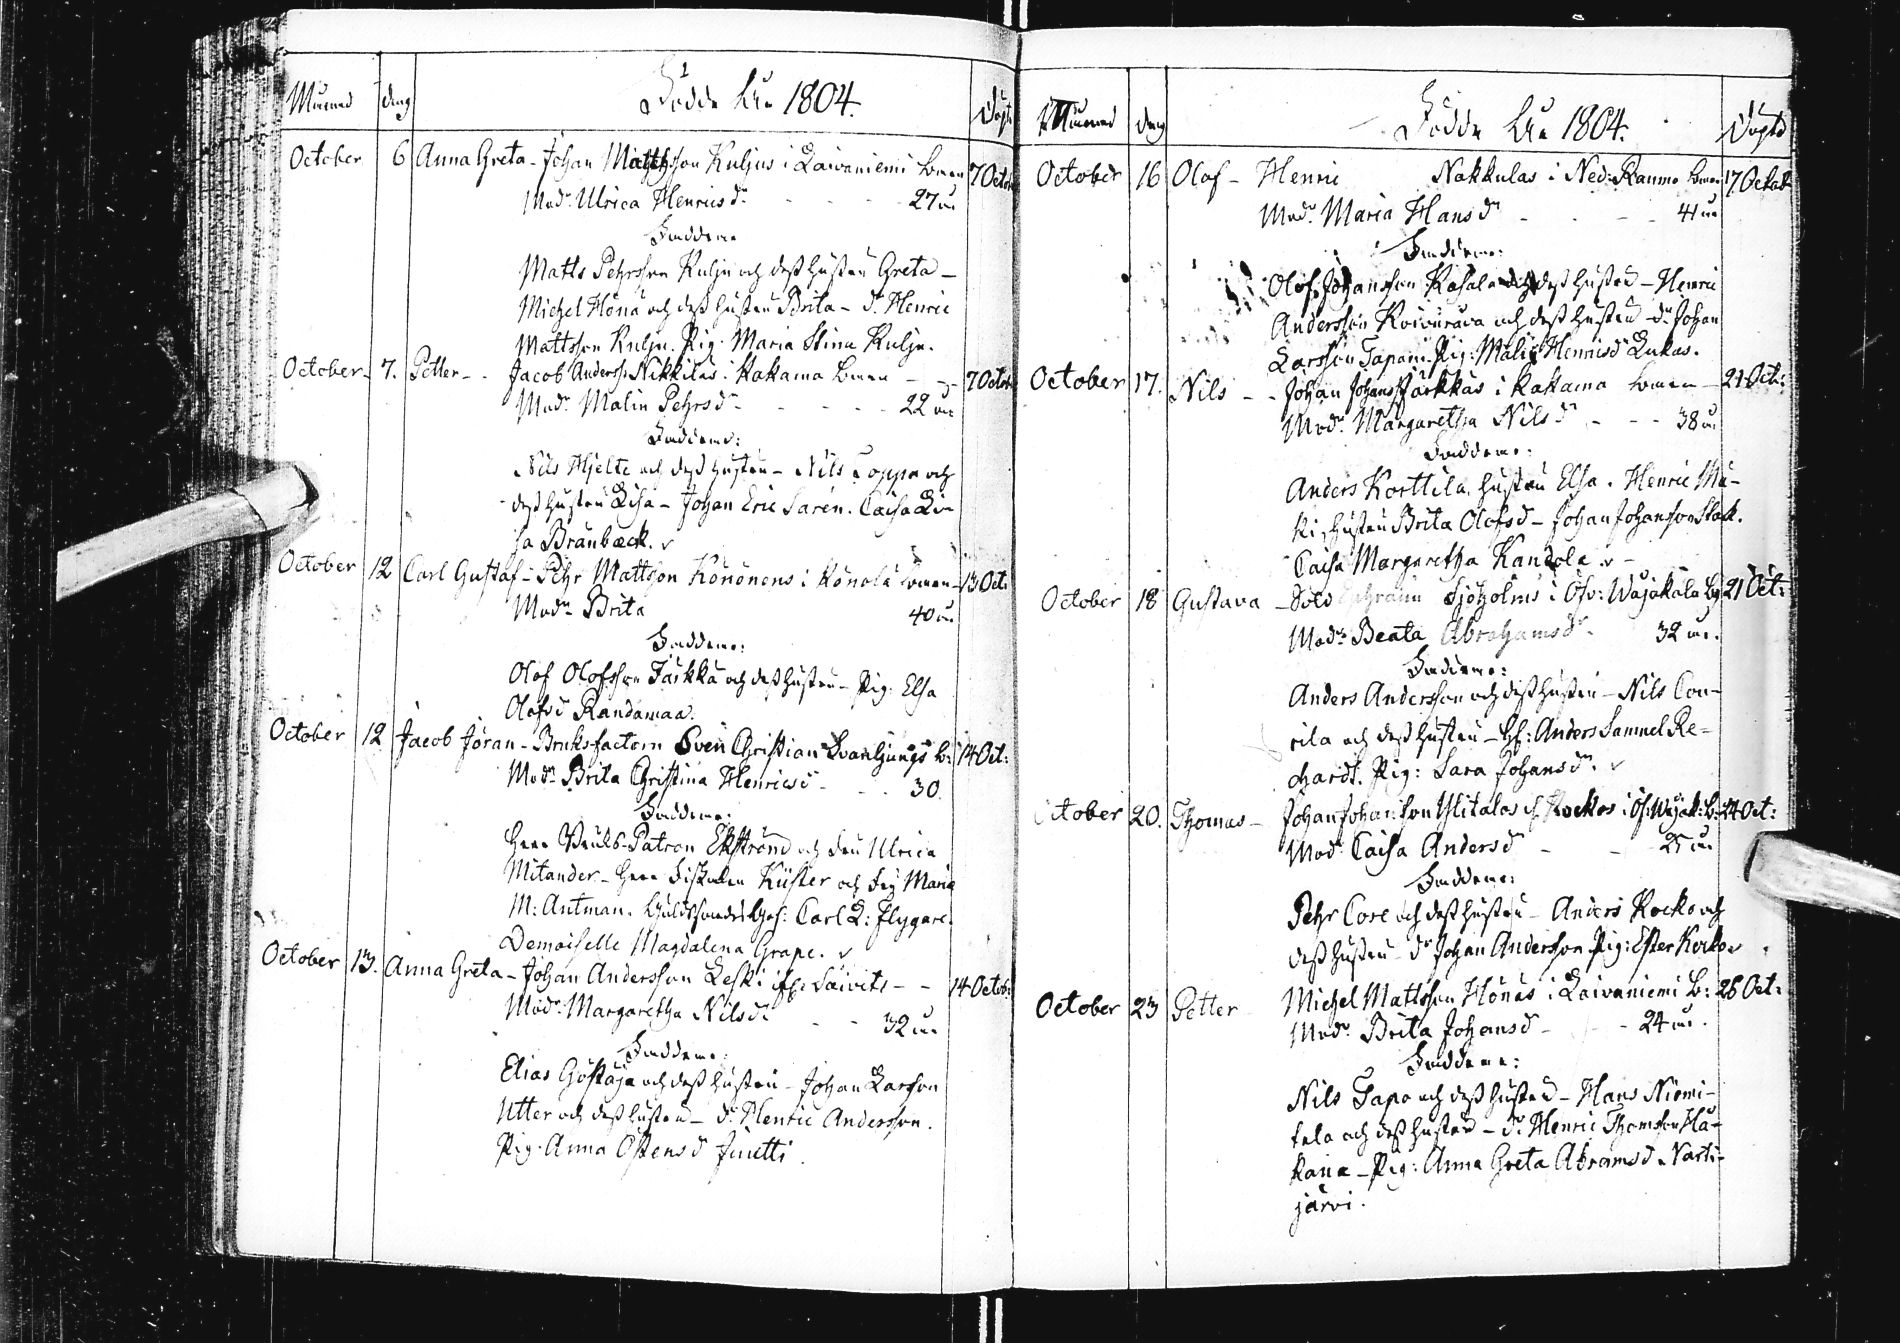 Månad dag Födde År 1804. Döpte
October 6 Anna Greta - Johan Mattsson Kuljus i Laivaniemi barn 7 Octob
Modr Ulrica Henricsdr 27 år
Faddrar
Matts Pehrsson Kulju och dess hustru Greta -
Michel Höna och dess hustru Brita - dr. Henric
Mattsson Kulju. Pig. Maria Stina Kulju.
October 7. Petter - Jacob Anderss. Nikkilas i Kakama barn 7 Octob
Modr Malin Pehrsdr 22 år
Faddrar:
Nils Hjelte och dess hustru - Nils Toppo och
dess hustru Lisa - Johan Eric Saren. Caisa Li-
sa Brunbæck.
October 12 Carl Gustaf - Pehr Mattsson Könönens i Könölä barn 13 Oct:
Modr Brita 40 år
Faddrar:
Olof Olofsson Taikka och dess hustru - Pig. Elsa
Olofsd Randamaa.
October 12 Jacob Jöran - Bruksfactorn Sven Christian Svanljungs b: 14 Oct:
Modr Brita Christina Henricsd 30.
Faddrar:
Herr Bruks-Patron Ekström och Fru Ulrica
Mitander - Herr Fiskalen Küster och Frij Maria
M: Antman. Guldsmeds Ges: Carl L: Flygare.
Demoiselle Magdalena Grape.
October 13. Anna Greta - Johan Andersson Leski i Saivits 14 Octob:
Modr Margaretha Nilsdr 32 år
Faddrar:
Elias Göstaja och dess hustru - Johan Larsson
Utter och dess hustru - dr. Henric Andersson.
Pig. Anna Östensd Juntti.
Månad dag Födde År 1804. Döpte
October 16 Olof - Henric Nakkulas i Ned: Raumo barn 17 Octob
Modr Maria Hansdr 41 år
Faddrar:
Olof Johansson Kasala och dess hustru - Henric
Andersson Koivuråva och dess hustru - dr Johan
Larsson Tapani. Pig: Malin Henricsd Lukas.
October 17. Nils - Johan Johanss Parkkas i Kakama barn 21 Oct:
Modr Margaretha Nilsdr 38 år
Faddrar:
Anders Korttila, hustru Elsa. Henric Mä-
ki, hustru Brita Olofsd - Johan Johansson Stak.
Caisa Margaretha Kandola.
October 18 Gustava - Sold Ephraim Sjöholms i Öfv: Wojakala b: 21 Oct:
Modr Beata Abrahamsdr. 32 år.
Faddrar:
Anders Andersson och dess hustru - Nils Con-
tila och dess hustru - Anders Samuel Re-
chardt. Pig: Sara Johansdr.
October 20. Thomas - Johan Johansson Ylitalos Rockos i Öf: Wojak: b: 24 Oct:
Modr Caisa Andersd 25 år
Faddrar:
Pehr Core och dess hustru - Anders Rocko och
dess hustru - dr Johan Andersson Pig: Ester Korko
October 23 Petter Michel Mattsson Hönas i Laivaniemi b: 28 Oct:
Modr Brita Johansd 24 år.
Faddrar:
Nils Tapo och dess hustru - Hans Niemi-
tela och dess hustru - dr. Henric Thomsson Ha-
kana - Pig: Anna Greta Abramsd. Narti-
järvi.